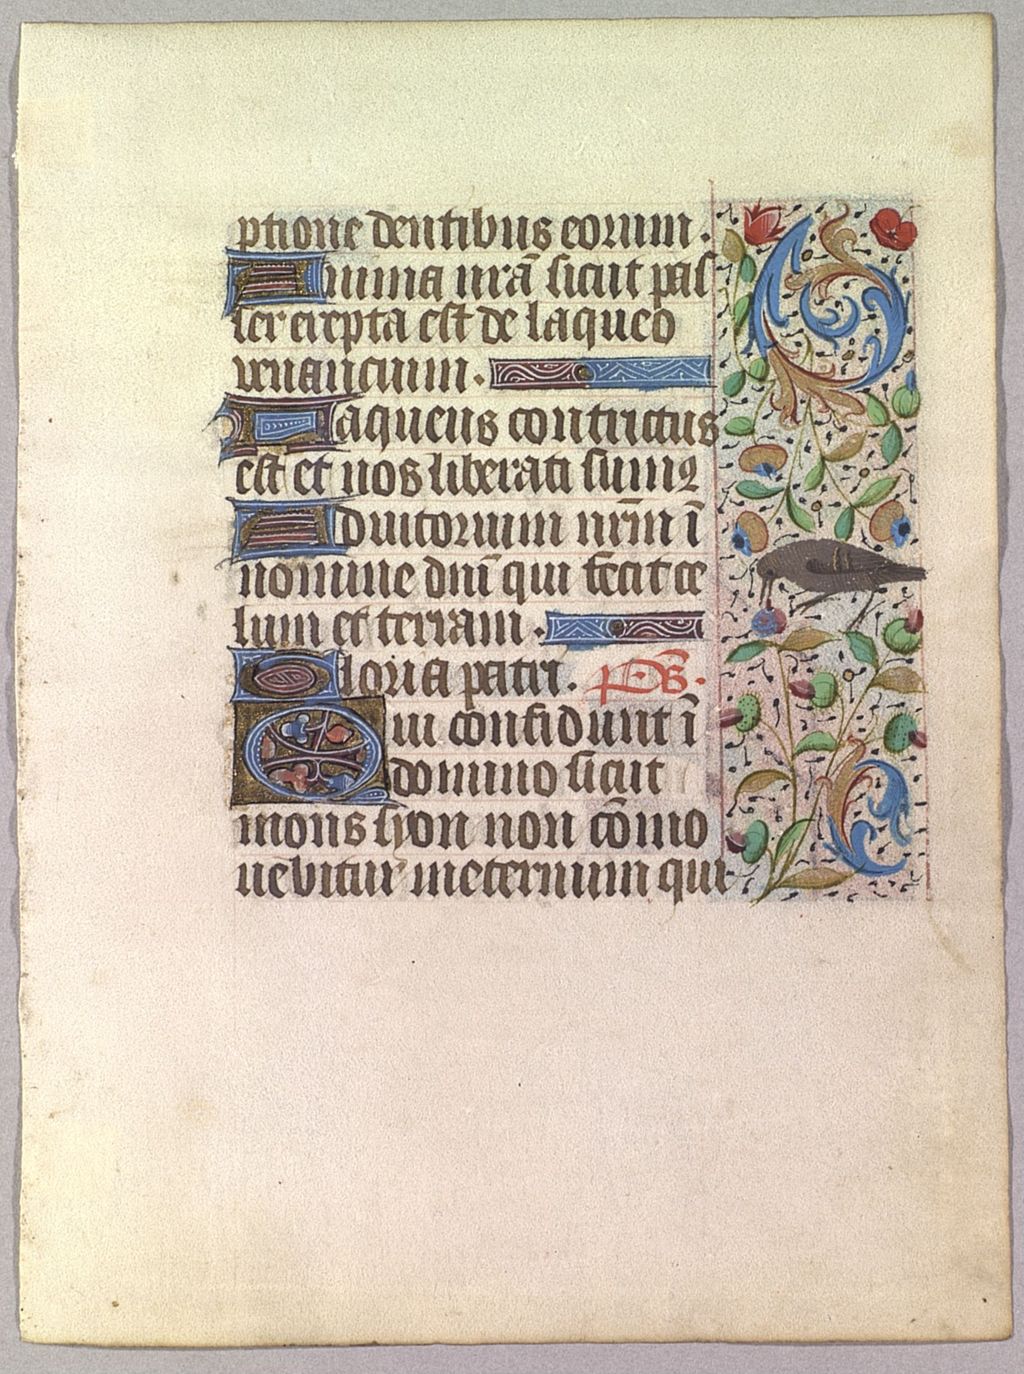 ptione dentibus eorum.
Anima nrā sicut pas
ser erepta est de laqueo
venancium.
Laqueus contrictus
est et nos liberati sumꝰ
Adiutorium nrm̄ ī
nomine dnī qui fecit ce
lum et terram.
Gloria patri. Ps̄.
Qui confidunt ī
domino sicut
mons syon non cōmo
uebitur ineternum qui